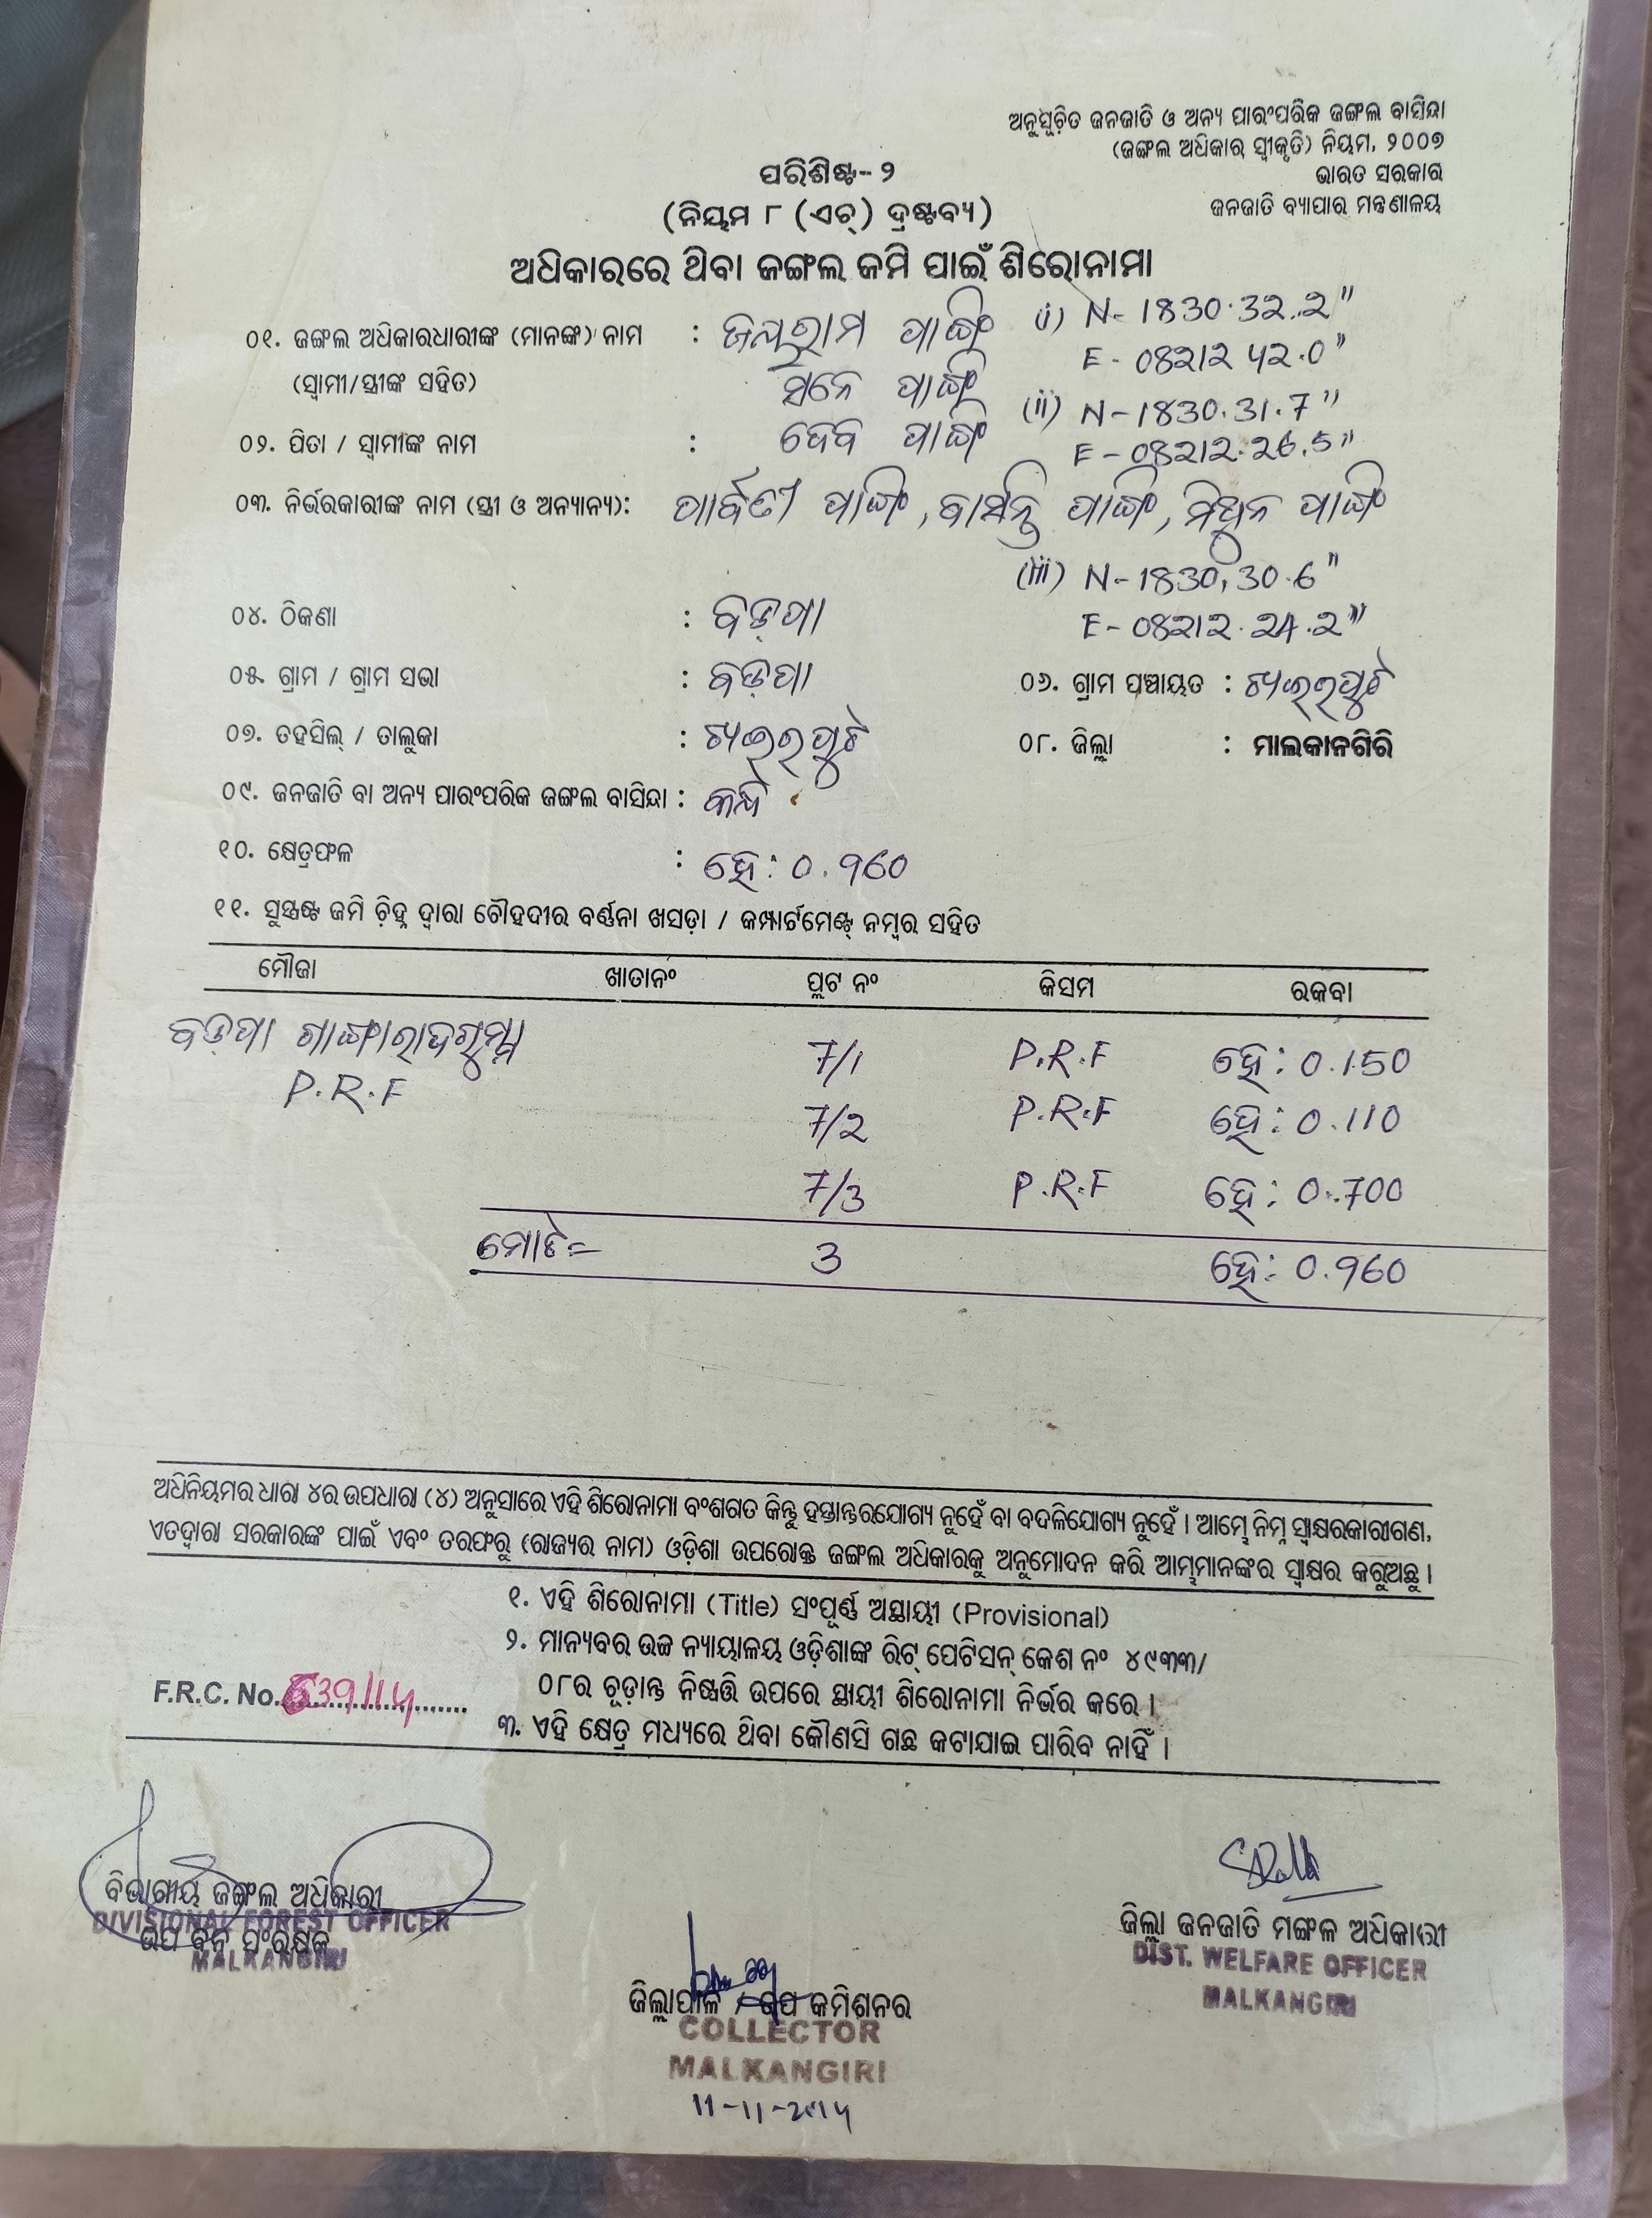 ଅନୁସୂଚିତ ଜନଜାତି ଓ ଅନ୍ୟ ପାରଂପରିକ ଜଙ୍ଗଲ ବାସିନ୍ଦା
(ଜଙ୍ଗଲ ଅଧିକାର ସ୍ୱୀକୃତି) ନିୟମ, ୨୦୦୭
ଭାରତ ସରକାର
ଜନଜାତି ବ୍ୟାପାର ମନ୍ତ୍ରଣାଳୟ
ପରିଶିଷ୍ଟ-୨
(ନିୟମ ୮ (ଏଚ୍) ଦ୍ରଷ୍ଟବ୍ୟ)
ଅଧିକାରରେ ଥିବା ଜଙ୍ଗଲ ଜମି ପାଇଁ ଶିରୋନାମା
୦୧. ଜଙ୍ଗଲ ଅଧିକାରଧାରୀଙ୍କ (ମାନଙ୍କ) ନାମ : ଜୟରାମ ପାଙ୍ଗି (i) N- 1830.32.2"
E- 08212 42.0"
(ସ୍ୱାମୀ/ସ୍ତ୍ରୀଙ୍କ ସହିତ) ସନେ ପାଙ୍ଗି
(ii) N-1830.31.7"
୦୨. ପିତା / ସ୍ୱାମୀଙ୍କ ନାମ : ଦେବ ପାଙ୍ଗି E-08212.26.5"
୦୩. ନିର୍ଭରକାରୀଙ୍କ ନାମ (ସ୍ତ୍ରୀ ଓ ଅନ୍ୟାନ୍ୟ): ପାର୍ବତୀ ପାଙ୍ଗି, ବାସନ୍ତି ପାଙ୍ଗି, ମିଥୁନ ପାଙ୍ଗି
(iii) N-1830.30.6"
୦୪. ଠିକଣା : ବଡ଼ପା E-08212.24.2"
୦୫. ଗ୍ରାମ / ଗ୍ରାମ ସଭା : ବଡ଼ପା ୦୬. ଗ୍ରାମ ପଞ୍ଚାୟତ : ଖଇରପୁଟ
୦୭. ତହସିଲ୍ / ତାଲୁକା : ଖଇରପୁଟ ୦୮. ଜିଲ୍ଲା : ମାଲକାନଗିରି
୦୯. ଜନଜାତି ବା ଅନ୍ୟ ପାରଂପରିକ ଜଙ୍ଗଲ ବାସିନ୍ଦା : କନ୍ଧ
୧୦. କ୍ଷେତ୍ରଫଳ : ହେ: ୦.୨60
୧୧. ସୁସ୍ପଷ୍ଟ ଜମି ଚିହ୍ନ ଦ୍ୱାରା ଚୌହଦୀର ବର୍ଣ୍ଣନା ଖସଡ଼ା / କମ୍ପାର୍ଟମେଣ୍ଟ୍ ନମ୍ବର ସହିତ
ମୌଜା ଖାତାନଂ ପ୍ଲଟ ନଂ କିସମ ରକବା
ବଡ଼ପା 7/1 P.R.F ହେ: 0.150
P.R.F 7/2 P.R.F ହେ: 0.110
7/3 P.R.F ହେ: 0.700
ମୋଟ= 3 ହେ: 0.960
ଅଧିନିୟମର ଧାରା ୪ର ଉପଧାରା (୪) ଅନୁସାରେ ଏହି ଶିରୋନାମା ବଂଶଗତ କିନ୍ତୁ ହସ୍ତାନ୍ତରଯୋଗ୍ୟ ନୁହେଁ ବା ବଦଳିଯୋଗ୍ୟ ନୁହେଁ । ଆମ୍ଭେ ନିମ୍ନ ସ୍ୱାକ୍ଷରକାରୀଗଣ,
ଏତଦ୍ୱାରା ସରକାରଙ୍କ ପାଇଁ ଏବଂ ତରଫରୁ (ରାଜ୍ୟର ନାମ) ଓଡ଼ିଶା ଉପରୋକ୍ତ ଜଙ୍ଗଲ ଅଧିକାରକୁ ଅନୁମୋଦନ କରି ଆମ୍ଭମାନଙ୍କର ସ୍ୱାକ୍ଷର କରୁଅଛୁ ।
୧. ଏହି ଶିରୋନାମା (Title) ସଂପୂର୍ଣ୍ଣ ଅସ୍ଥାୟୀ (Provisional)
୨. ମାନ୍ୟବର ଉଚ୍ଚ ନ୍ୟାୟାଳୟ ଓଡ଼ିଶାଙ୍କ ରିଟ୍ ପେଟିସନ୍ କେଶ ନଂ ୪୯୩୩/
୦୮ର ଚୂଡ଼ାନ୍ତ ନିଷ୍ପତ୍ତି ଉପରେ ସ୍ଥାୟୀ ଶିରୋନାମା ନିର୍ଭର କରେ ।
F.R.C. No.
୩. ଏହି କ୍ଷେତ୍ର ମଧ୍ୟରେ ଥିବା କୌଣସି ଗଛ କଟାଯାଇ ପାରିବ ନାହିଁ ।
ବିଭାଗୀୟ ଜଙ୍ଗଲ ଅଧିକାରୀ
DIVISIONAL FOREST OFFICER
ଉପ ବନ ସଂରକ୍ଷକ
MALKANGIRI
ଜିଲ୍ଲା ଜନଜାତି ମଙ୍ଗଳ ଅଧିକାରୀ
DIST. WELFARE OFFICER
MALKANGIRI
ଜିଲ୍ଲାପାଳ / ଉପ କମିଶନର
COLLECTOR
MALKANGIRI